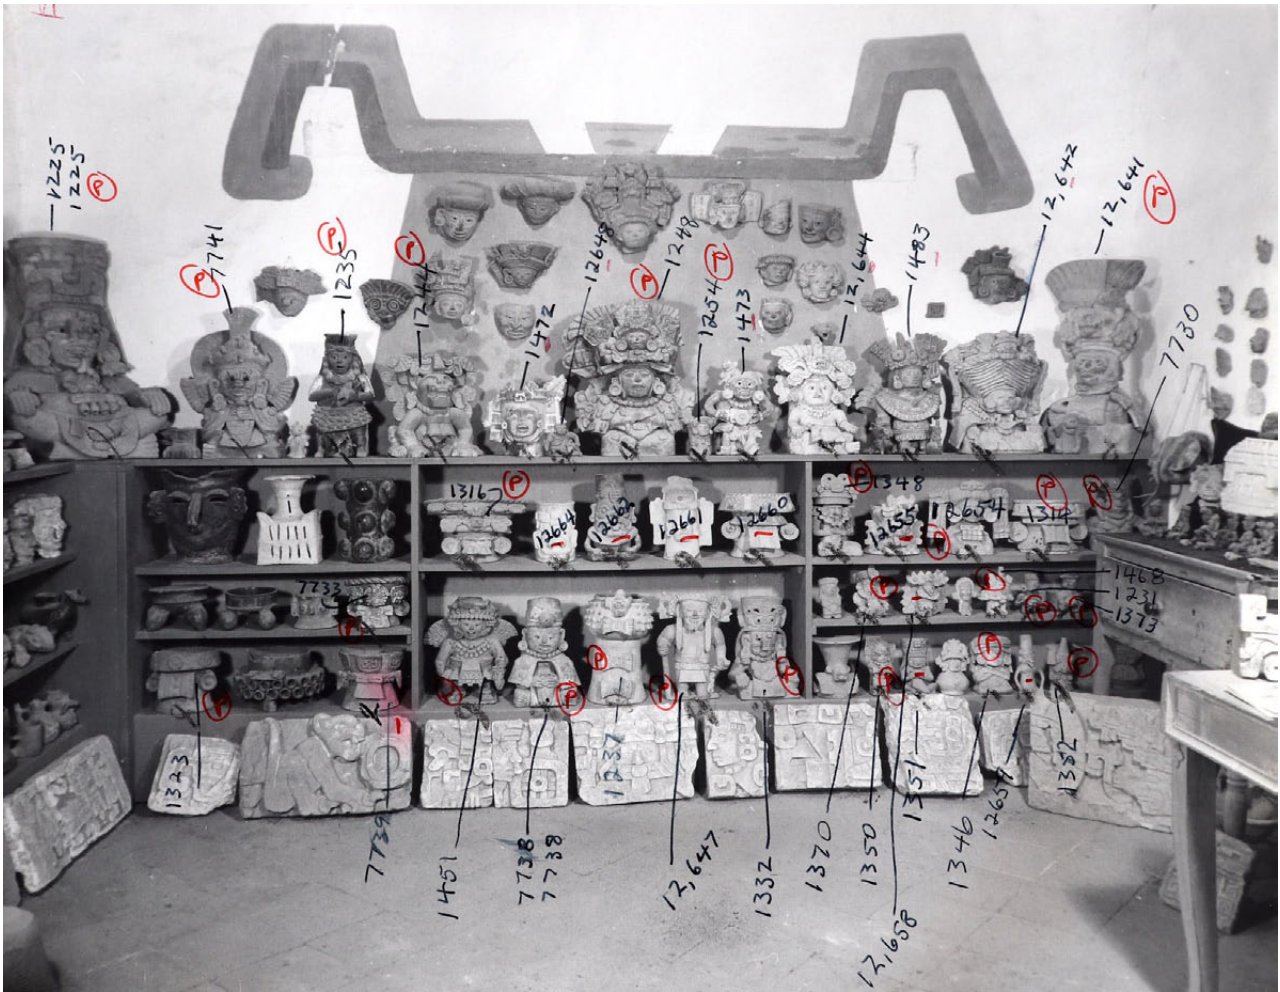 VI
1225
1225
P
P
7741
P
1235
P
1244
1472
12648
P
1248
P
1254
1473
12,644
1483
12,642
12,641
P
7730
1316
P
12664
12662
12661
12660
P
1348
12655
P
12654
P
1314
P
7733
P
P
P
1468
1231
1373
P
P
P
1323
P
7739
1451
P
7738
7738
P
1237
P
12,647
P
1332
P
1370
1350
P
12,658
1351
P
1346
12659
1352
P